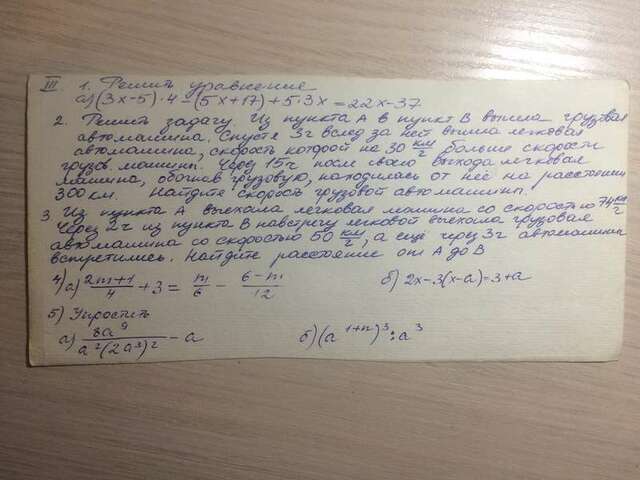 III. 1. Решить уравнение
а) (3х-5)·4-(5х+17)+5·3х=22х-37
2. Решить задачу. Из пункта А в пункт В вышла грузовая
автомашина. Спустя 3ч вслед за ней вышла легковая
автомашина, скорость которой на 30 км/ч больше скорости
грузов. машины. Через 15ч после своего выхода легковая
машина, обогнав грузовую, находилась от неё на расстоянии
300 км. Найдите скорость грузовой автомашины.
3 Из пункта А выехала легковая машина со скоростью км/ч
Через 2ч из пункта В навстречу легковой выехала грузовая
автомашина со скоростью 50 км/ч, а ещё через 3ч автомашины
встретились. Найдите расстояние от А до В
4) а) (2m+1)/4 + 3 = m/6 - (6-m)/12 б) 2х-3(х-а)=3+а
5) Упростить
а) 8а⁹/(а²(2а³)²) - а б) (а¹⁺ⁿ)³:а³